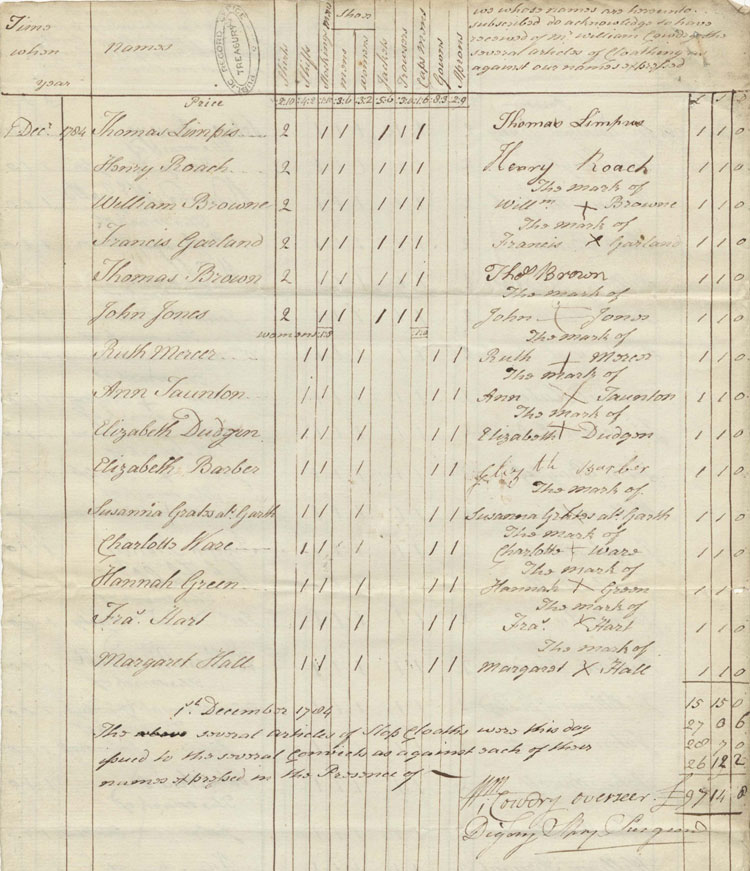 Time when year
Names
Shirts
Shifts
Stockings prs
Shoes
mens
womens
Jackets
Trowsers
Caps mens
Gowns
Aprons
we whose names are hereunto
subscribed do acknowledge to have
received of Mr William Cowdry the
several articles of Cloathing as
against our names expressed
Price
1 Decr 1784 Thomas Limpis 2 1 1 1 1 1 Thomas Limpus 1 1 0
Henry Roach 2 1 1 1 1 1 Henry Roach 1 1 0
The mark of
William Browne 2 1 1 1 1 1 Willm X Browne 1 1 0
The mark of
Francis Garland 2 1 1 1 1 1 Francis X Garland 1 1 0
Thomas Brown 2 1 1 1 1 1 Thos Brown 1 1 0
The mark of
John Jones 2 1 1 1 1 1 John Jones 1 1 0
womens
The mark of
Ruth Mercer 1 1 1 1 1 Ruth + Mercer 1 1 0
The mark of
Ann Taunton 1 1 1 1 1 Ann X Taunton 1 1 0
The mark of
Elizabeth Dudgen 1 1 1 1 1 Elizabeth + Dudgen 1 1 0
Elizabeth Barber 1 1 1 1 1 Barber 1 1 0
The mark of
Susannia Grates at Garth 1 1 1 1 1 Susanna Grates at Garth 1 1 0
The mark of
Charlotte Ware 1 1 1 1 1 Charlotte + Ware 1 1 0
The mark of
Hannah Green 1 1 1 1 1 Hannah X Green 1 1 0
The mark of
Fras Hart 1 1 1 1 1 Fras X Hart 1 1 0
The mark of
Margaret Hall 1 1 1 1 1 Margaret X Hall 1 1 0
15 15 0
1st December 1784
27 0 6
The above several articles of Slop Cloaths were this day
28 7 0
issued to the several Convicts as against each of their
26 12 2
names expressed in the Presence of
Wm Cowdry overseer £97 14 8